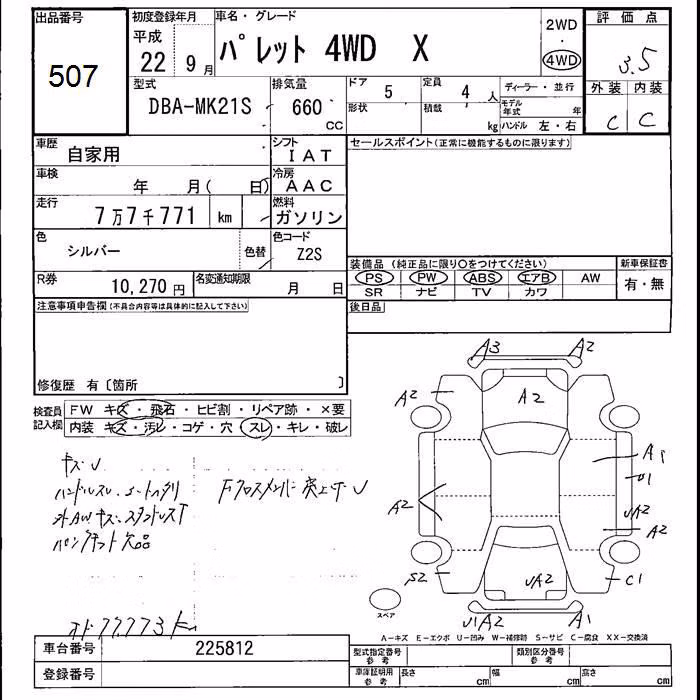 出品番号 初度登録年月 車名・グレード 2WD 評価点
507 平成 22 年 9 月 パレット 4WD X ・ 4WD 3.5
型式 排気量 ドア 定員 ディーラー・並行 外装 内装
DBA-MK21S 660 CC 5 4 人 モデル年式 年 C C
形状 積載 kg ハンドル 左・右
車歴 自家用 シフト IAT セールスポイント(正常に機能するものに限ります)
車検 年 月( 日) 冷房 AAC
走行 7万7千771 km 燃料 ガソリン
色 シルバー 色替 色コード Z2S
装備品 (純正品に限り○をつけてください) 新車保証書
R券 10,270 円 名変通知期限 月 日 PS PW ABS エアB AW 有・無
SR ナビ TV カワ
注意事項申告欄(不具合内容等は具体的に記入して下さい) 後日品
修復歴 有〔箇所 〕
検査員記入欄 FW キズ・飛石・ヒビ割・リペア跡・×要
内装 キズ・汚レ・コゲ・穴・スレ・キレ・破レ
A3 A2
A2 A2
A1
U1
A2 UA2
A2
S2 UA2 C1
U1A2 A1
スペア
キズU
ハンドルスレ、シートヘタリ Fクロスメンバー突上ゲU
外AWキズ、スタンドレスT
パンクキット欠品
オド77773km
A-キズ E-エクボ U-凹み W-補修跡 S-サビ C-腐食 XX-交換済
車台番号 225812 型式指定番号 参考 類別区分番号 参考
登録番号 車庫証明用 参考 長さ cm 幅 cm 高さ cm